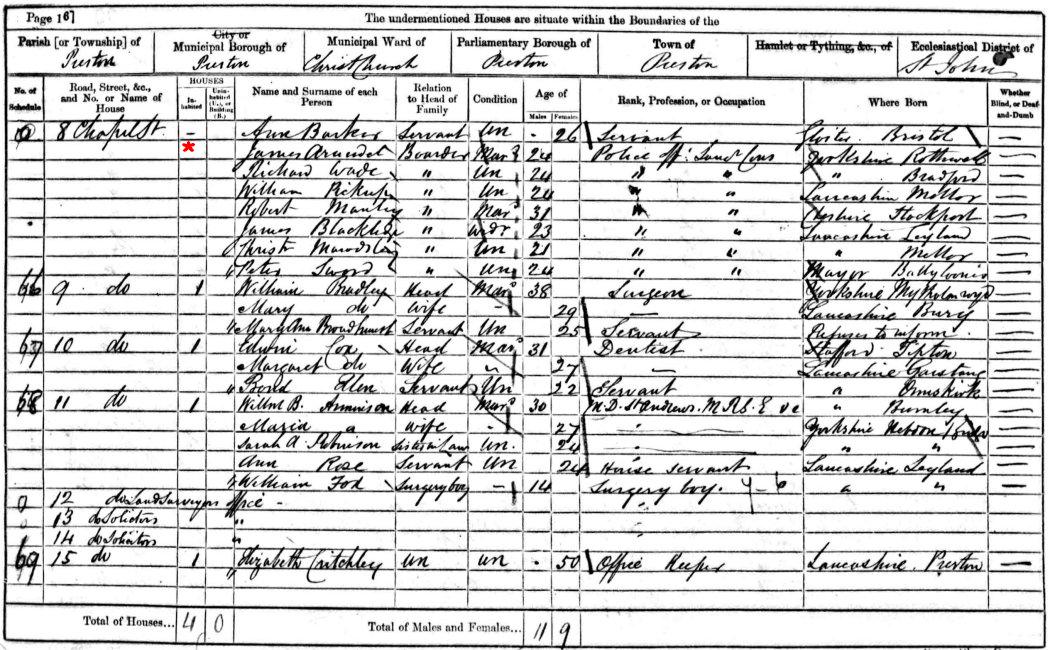 Page 16
The undermentioned Houses are situate within the Boundaries of the
Parish [or Township] of Preston
City or Municipal Borough of Preston
Municipal Ward of Christ Church
Parliamentary Borough of Preston
Town of Preston
Hamlet or Tything, &c., of
Ecclesiastical District of St Johns
No. of Schedule
Road, Street, &c., and No. or Name of House
HOUSES
Inhabited
Uninhabited (U.), or Building (B.)
Name and Surname of each Person
Relation to Head of Family
Condition
Age of
Males
Females
Rank, Profession, or Occupation
Where Born
Whether Blind, or Deaf-and-Dumb
8 Chapel St - Ann Barker Servant Un - 26 Servant Bristol
* James Arundel Boarder Mard 24 Police Yorkshire Rothwell
Richard Wade " Un 24 " " " Bradford
William Pickup " Un 24 " " Lancashire Mellor
Robert Manley " Mard 31 " " Cheshire Stockport
James " Widr 23 " " Lancashire Leyland
Christr " Un 21 " " " Mellor
Peter Sword " Un 24 " " Mayor
66 9 do 1 William Bradley Head Mard 38 Surgeon Yorkshire
Mary do Wife - 29 Lancashire Bury
Mary Ann Broadhurst Servant Un 25 Servant Refuses to inform
67 10 do 1 Edwin Cox Head Mard 31 Dentist Stafford Tipton
Margaret do Wife " 27 - Lancashire Garstang
Bond Ellen Servant Un 22 Servant " Ormskirk
68 11 do 1 Willm B. Head Mard 30 M.D. St Andrews. M.R.C.S.E " Burnley
Maria a Wife - 27 - Yorkshire Hebden
Sarah A Robinson Sister in Law Un. 24 " "
Ann Rose Servant Un 24 House Servant Lancashire Leyland
William Fox Surgery boy - 14 Surgery boy. " "
0 12 do Land Surveyors office -
13 do Solicitors "
14 do Solicitors "
69 15 do 1 Elizabeth Critchley Un Un - 50 Office Keeper Lancashire Preston
Total of Houses... 4 0
Total of Males and Females... 11 9